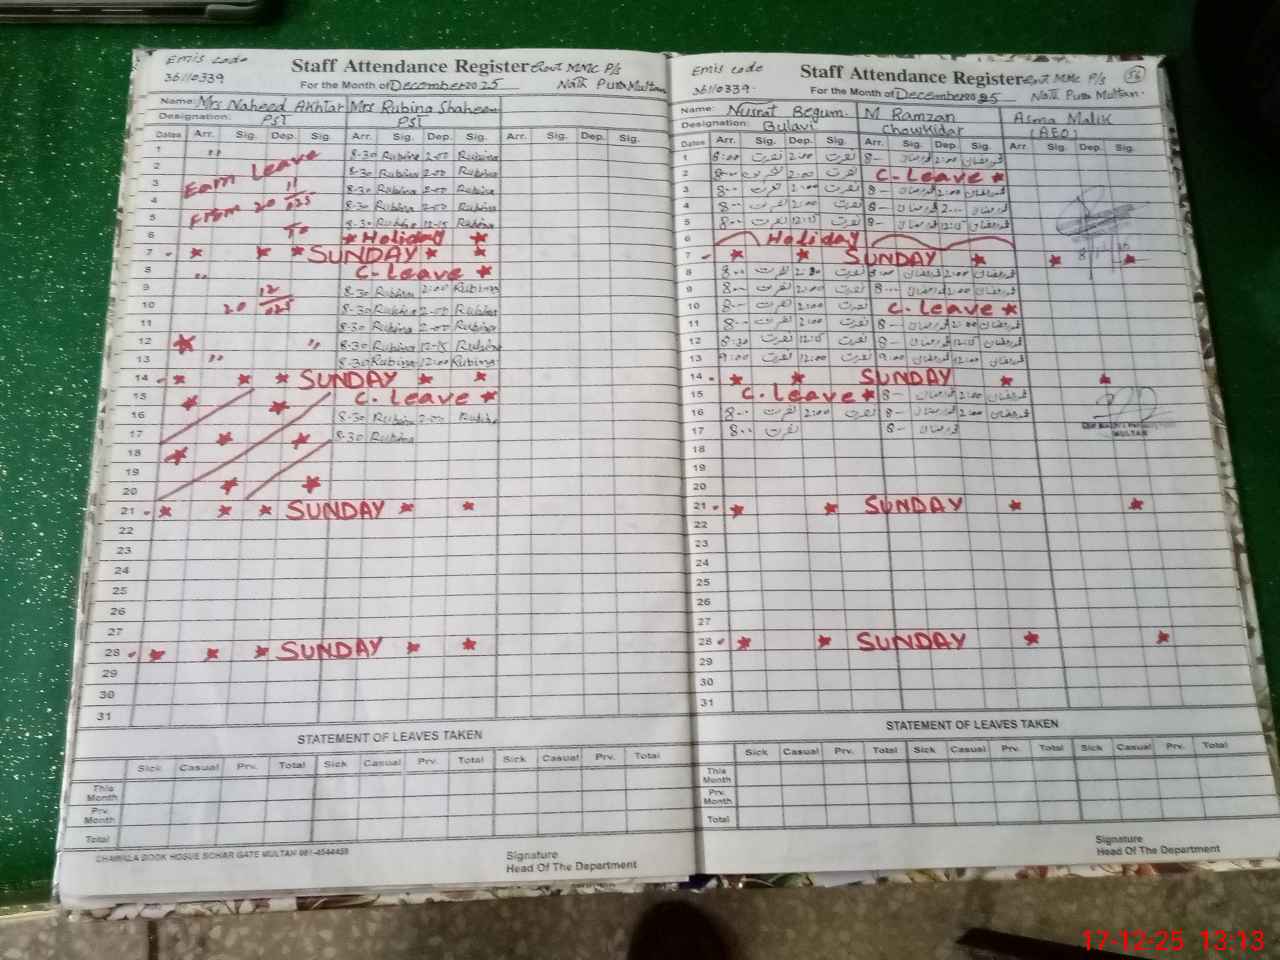 Emis code
36110339
Staff Attendance Register Govt MMC P/s
For the Month of December 2025 Nath Pura Multan
Name: Mrs Naheed Akhtar Mrs Rubina Shaheen
Designation: PST PST
Dates Arr. Sig. Dep. Sig. Arr. Sig. Dep. Sig. Arr. Sig. Dep. Sig.
1 " 8-30 Rubina 2-00 Rubina
2 Earn Leave 8-30 Rubina 2-00 Rubina
3 8-30 Rubina 2-00 Rubina
4 From 20 11/025 8-30 Rubina 2-00 Rubina
5 To 8-30 Rubina 12-15 Rubina
6 Holiday
7 SUNDAY
8 " C-Leave
9 8-30 Rubina 2:00 Rubina
10 20 12/025 8-30 Rubina 2-00 Rubina
11 8-30 Rubina 2-00 Rubina
12 " 8-30 Rubina 12-15 Rubina
13 " 8-30 Rubina 12:00 Rubina
14 SUNDAY
15 C.Leave
16 8-30 Rubina 2-00 Rubina
17 8-30 Rubina
18
19
20
21 SUNDAY
22
23
24
25
26
27
28 SUNDAY
29
30
31
STATEMENT OF LEAVES TAKEN
Sick Casual Prv. Total Sick Casual Prv. Total Sick Casual Prv. Total
This Month
Prv. Month
Total
CHAWLA BOOK HOSUE BOHAR GATE MULTAN 061-4544459
Signature
Head Of The Department
Emis code
36110339.
Staff Attendance Register Govt MMC P/s 56
For the Month of December 2025 Nath Pura Multan.
Name: Nusrat Begum. M Ramzan Asma Malik
Designation: Bulavi Chowkidar (AEO)
Dates Arr. Sig. Dep. Sig. Arr. Sig. Dep. Sig. Arr. Sig. Dep. Sig.
1 8:00 نصرت 2:00 نصرت 8- محمد رمضان 2:00 محمد رمضان
2 8-- نصرت 2:00 نصرت C-Leave
3 8-- نصرت 2:00 نصرت 8- محمد رمضان 2:00 محمد رمضان
4 8-- نصرت 2:00 نصرت 8- محمد رمضان 2-- محمد رمضان
5 8-- نصرت 12:15 نصرت 8- محمد رمضان 12:15 محمد رمضان
6 Holiday
7 SUNDAY
8 8-- نصرت 2:00 نصرت 8:00 محمد رمضان 2:00 محمد رمضان
9 8-- نصرت 2:00 نصرت 8-- محمد رمضان 2:00 محمد رمضان
10 8-- نصرت 2:00 نصرت C.Leave
11 8-- نصرت 2:00 نصرت 8- محمد رمضان 2:00 محمد رمضان
12 8:30 نصرت 12:15 نصرت 8- محمد رمضان 12:15 محمد رمضان
13 9:00 نصرت 12:00 نصرت 9:00 محمد رمضان 12:00 محمد رمضان
14 SUNDAY
15 C.Leave 8- محمد رمضان 2:00 محمد رمضان
16 8-- نصرت 2:00 نصرت 8- محمد رمضان 2:00 محمد رمضان
17 8-- نصرت 8- محمد رمضان
MULTAN
18
19
20
21 SUNDAY
22
23
24
25
26
27
28 SUNDAY
29
30
31
STATEMENT OF LEAVES TAKEN
Sick Casual Prv. Total Sick Casual Prv. Total Sick Casual Prv. Total
This Month
Prv. Month
Total
Signature
Head Of The Department
17-12-25 13:13